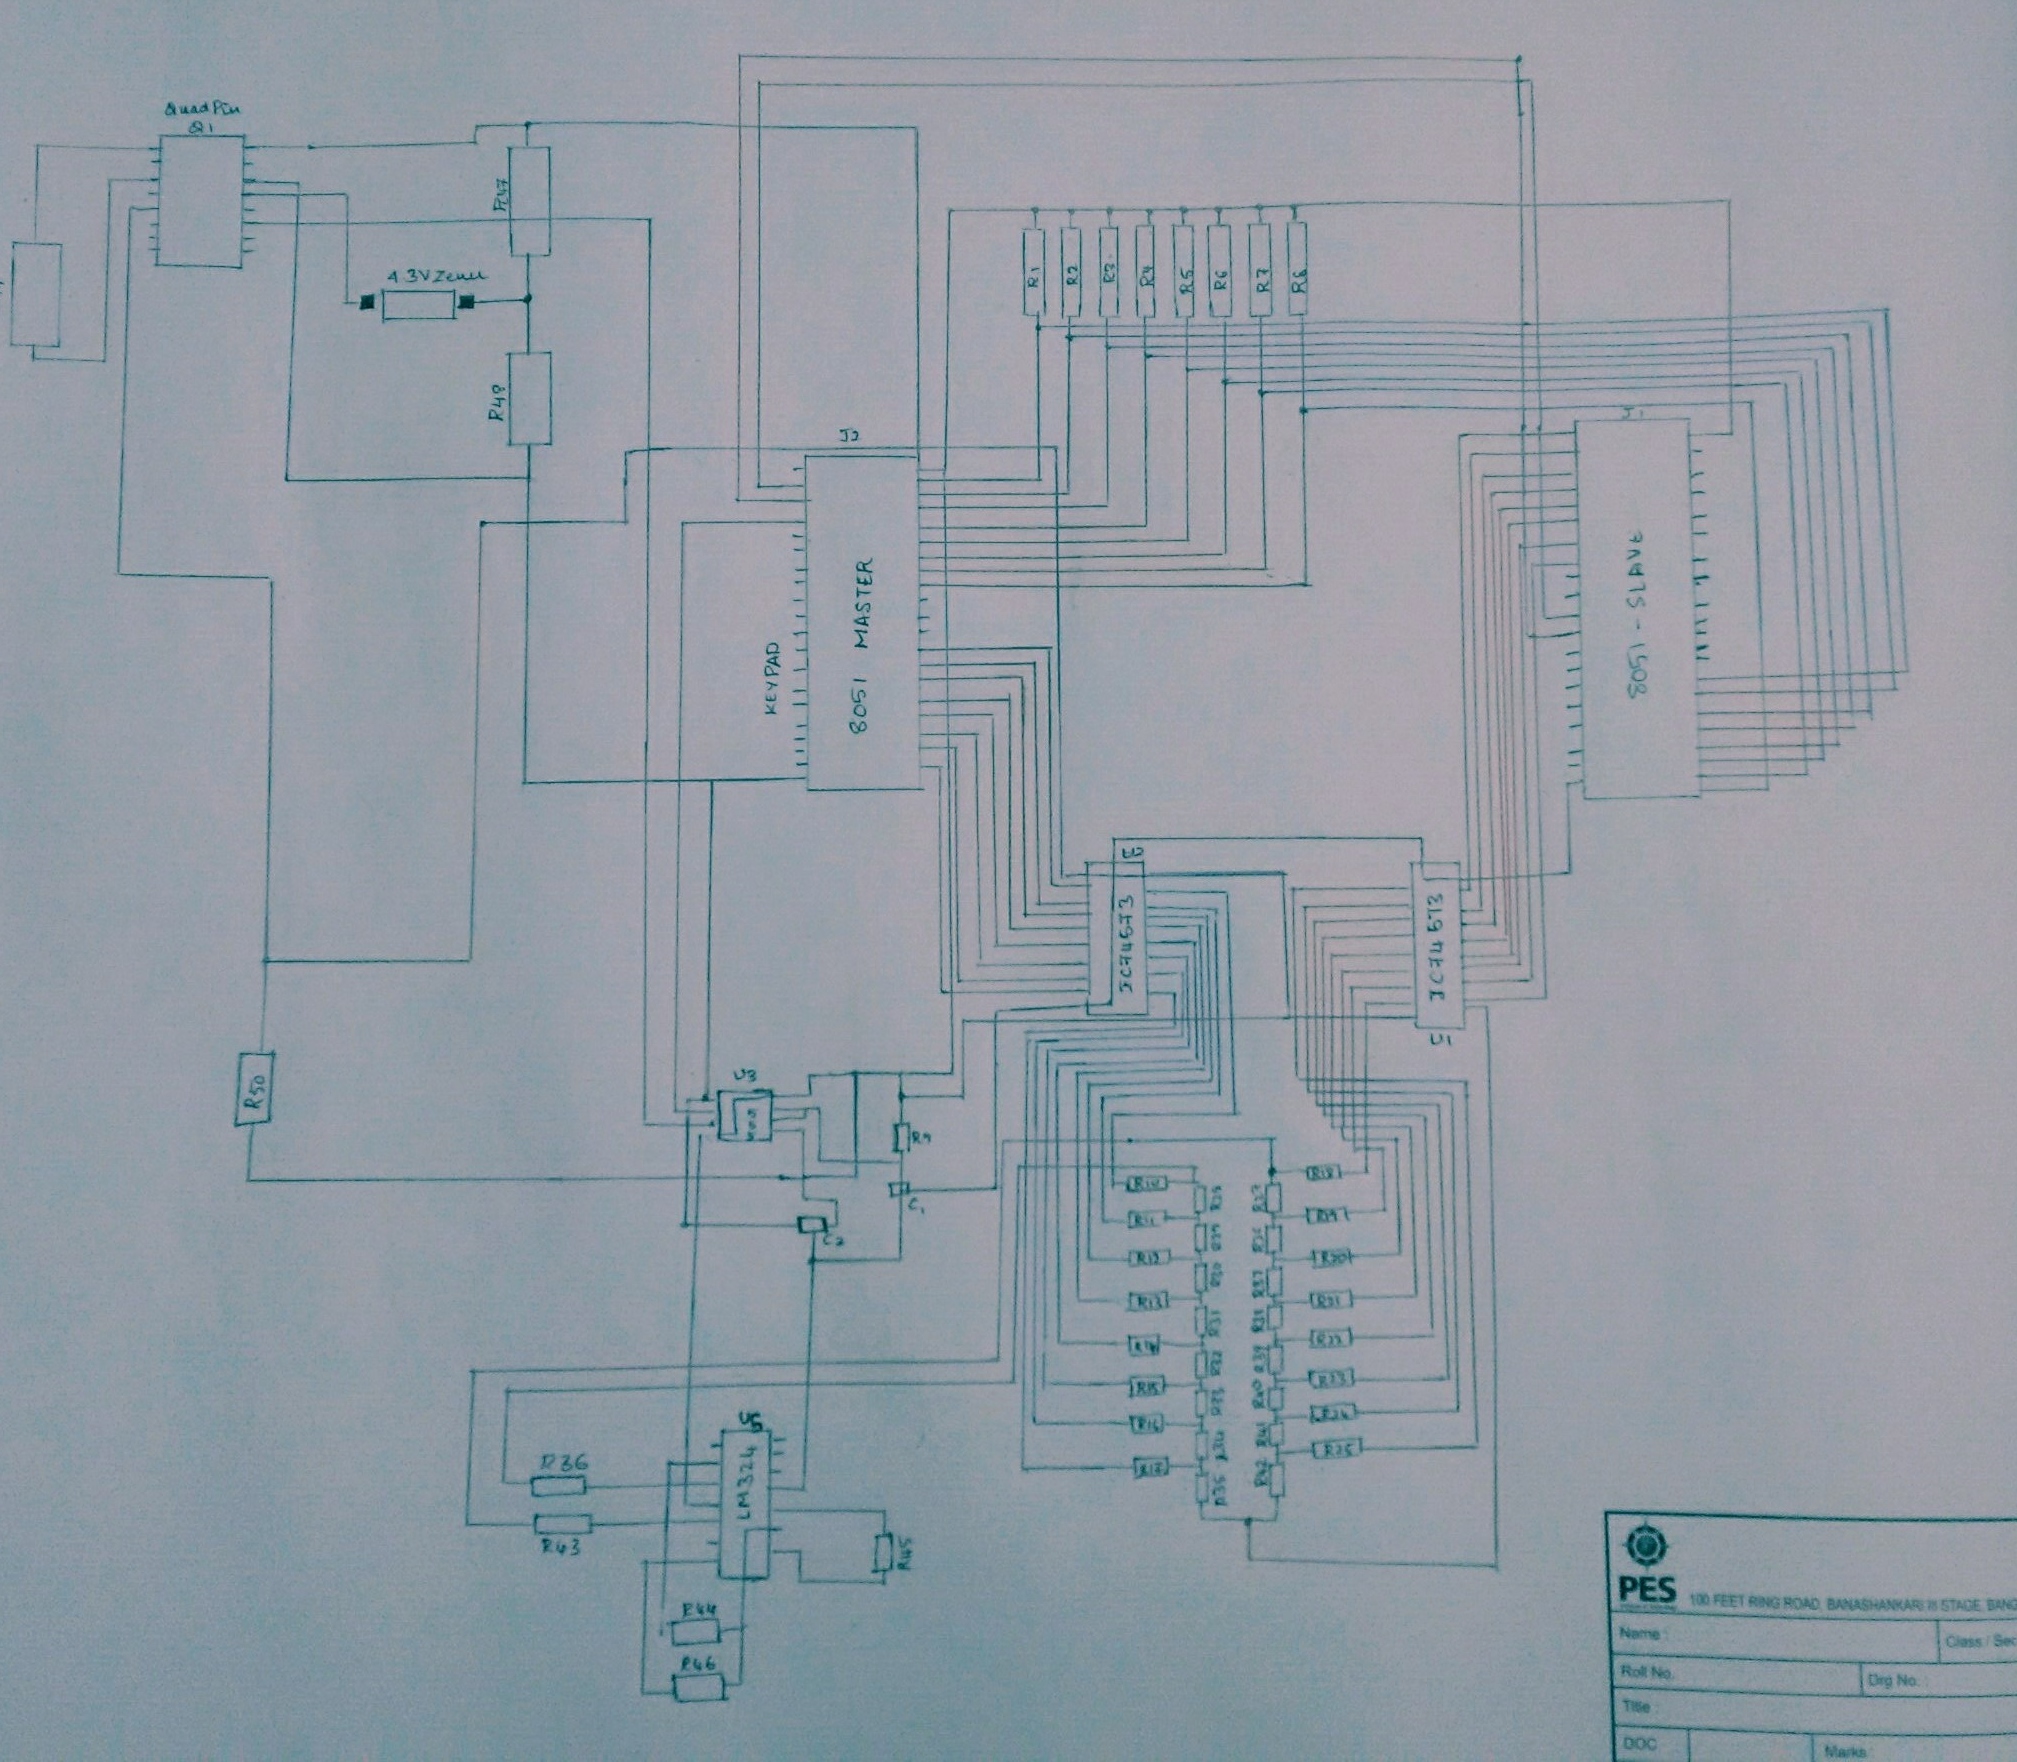 QuadPin
Q1
R47
4.3V Zener
R48
R1
R2
R3
R4
R5
R6
R7
R8
J2
J1
KEYPAD
8051 MASTER
8051 - SLAVE
U2
IC74573
IC74573
U1
R50
U3
R9
C1
C2
R10
R11
R12
R13
R14
R15
R16
R17
R18
R19
R20
R21
R22
R23
R24
R25
R30
R31
R32
R33
R34
R35
R39
R40
R41
R42
U5
LM324
R36
R43
R45
R44
R46
PES
100 FEET RING ROAD, BANASHANKARI III STAGE, BANG
Name :
Class / Sec
Roll No.
Drg No. :
Title :
DOC
Marks